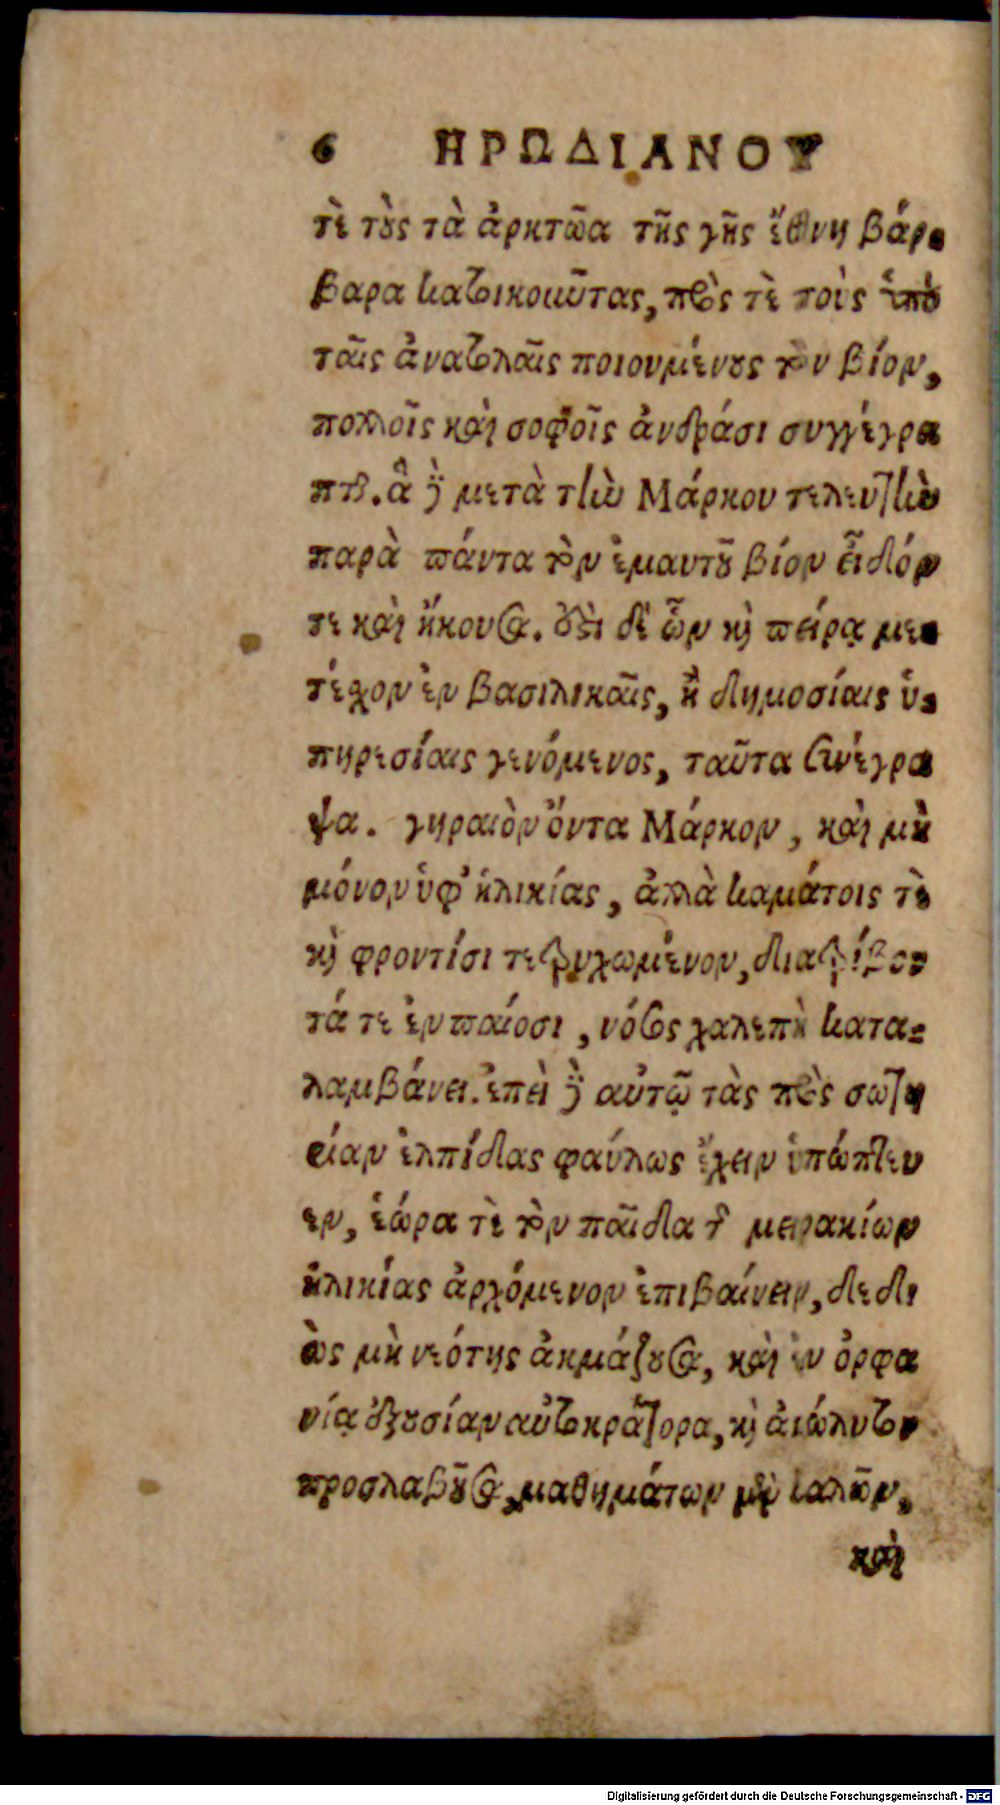 6 ΗΡΩΔΙΑΝΟΥ
τὲ τοὺς τὰ ἀρκτῶα τῆς γῆς ἔθνη βάρ-
βαρα κατοικοιῶτας, πρὸς τὲ τοὺς ὑπὸ
ταῖς ἀνατολαῖς ποιουμένους τὸν βίον,
πολλοῖς καὶ σοφοῖς ἀνδράσι συγγέγρα
πται. ἃ δὲ μετὰ τὴν Μάρκου τελευτὴν
παρὰ πάντα τὸν ἐμαυτοῦ βίον εἶδόν
τε καὶ ἤκουσα. ἔστι δὲ ὧν καὶ πείρᾳ με-
τέχον ἐν βασιλικαῖς, ἢ δημοσίαις ὑ-
πηρεσίαις γενόμενος, ταῦτα συνέγρα
ψα. γηραιὸν ὄντα Μάρκον, καὶ μὴ
μόνον ὑφ' ἡλικίας, ἀλλὰ καμάτοις τὲ
καὶ φροντίσι τετρυχωμένον, διατρίβον
τά τε ἐν παίοσι, νόσος χαλεπὴ κατα-
λαμβάνει. ἐπεὶ δὲ αὐτῷ τὰς πρὸς σωτη
ρίαν ἐλπίδας φαύλως ἔχειν ὑπώπτευ
εν, ἑώρα τὲ τὸν παῖδα τῆς μειρακίων
ἡλικίας ἀρχόμενον ἐπιβαίνειν, δεδι
ὼς μὴ νεότης ἀκμάζουσα, καὶ ἐν ὀρφα
νίᾳ ἐξουσίαν αὐτοκράτορα, καὶ ἀκώλυτον
προσλαβοῦσα, μαθημάτων μὲν καλῶν,
καὶ
Digitalisierung gefördert durch die Deutsche Forschungsgemeinschaft - DFG